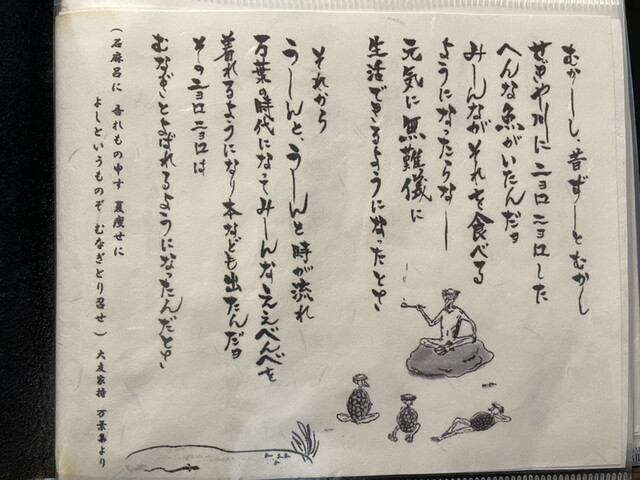 むかーし、昔ずーとむかし
せぎや川にニョロニョロした
へんな魚がいたんだョ
みーんながそれを食べる
ようになったらなー
元気に無難儀に
生活できるようになったとさ
それから
うーんと、うーんと時が流れ
万葉の時代になってみーんなええべんべを
着れるようになり本なども出たんだョ
そのニョロニョロは
むなぎとよばれるようになったんだとさ
(石麻呂に 吾れもの申す 夏痩せに
よしというものぞ むなぎとり召せ) 大友家持 万葉集より